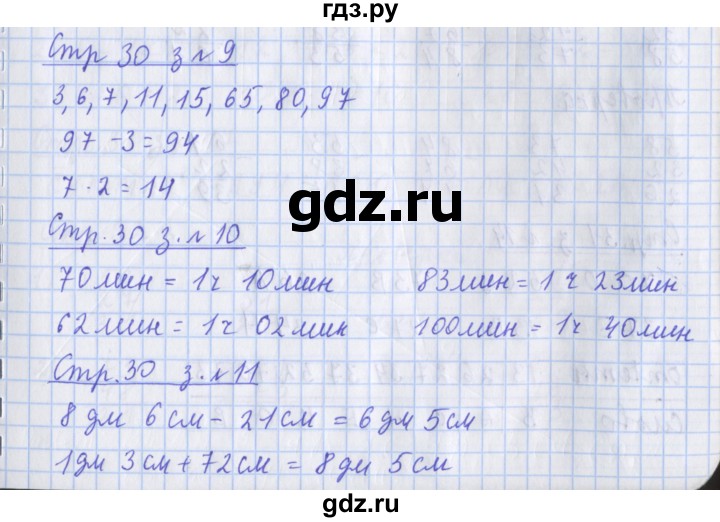 гдз.ру
Стр 30 з № 9
3, 6, 7, 11, 15, 65, 80, 97
97 - 3 = 94
7 · 2 = 14
gdz.ru
Стр. 30 з. № 10
70мин = 1ч 10мин 83мин = 1 ч 23мин
62мин = 1ч 02мин 100мин = 1ч 40мин
Стр. 30 з. № 11
8 дм 6 см - 21 см = 6 дм 5 см
1 дм 3 см + 72 см = 8 дм 5 см
gdz.ru